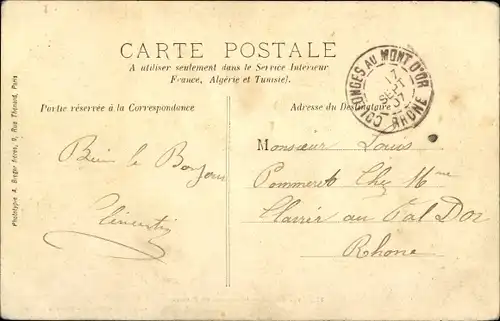 CARTE POSTALE
A utiliser seulement dans le Service Intérieur
France, Algérie et Tunisie).
Partie réservée à la Correspondance
Adresse du Destinataire
COLLONGES AU MONT D'OR
17
SEPT
07
RHONE
Bien le Bonjour
Monsieur Louis
Chez Mme
au Val D'Or
Rhone
Phototypie A. Breger frères, 9, Rue Thénard, Paris